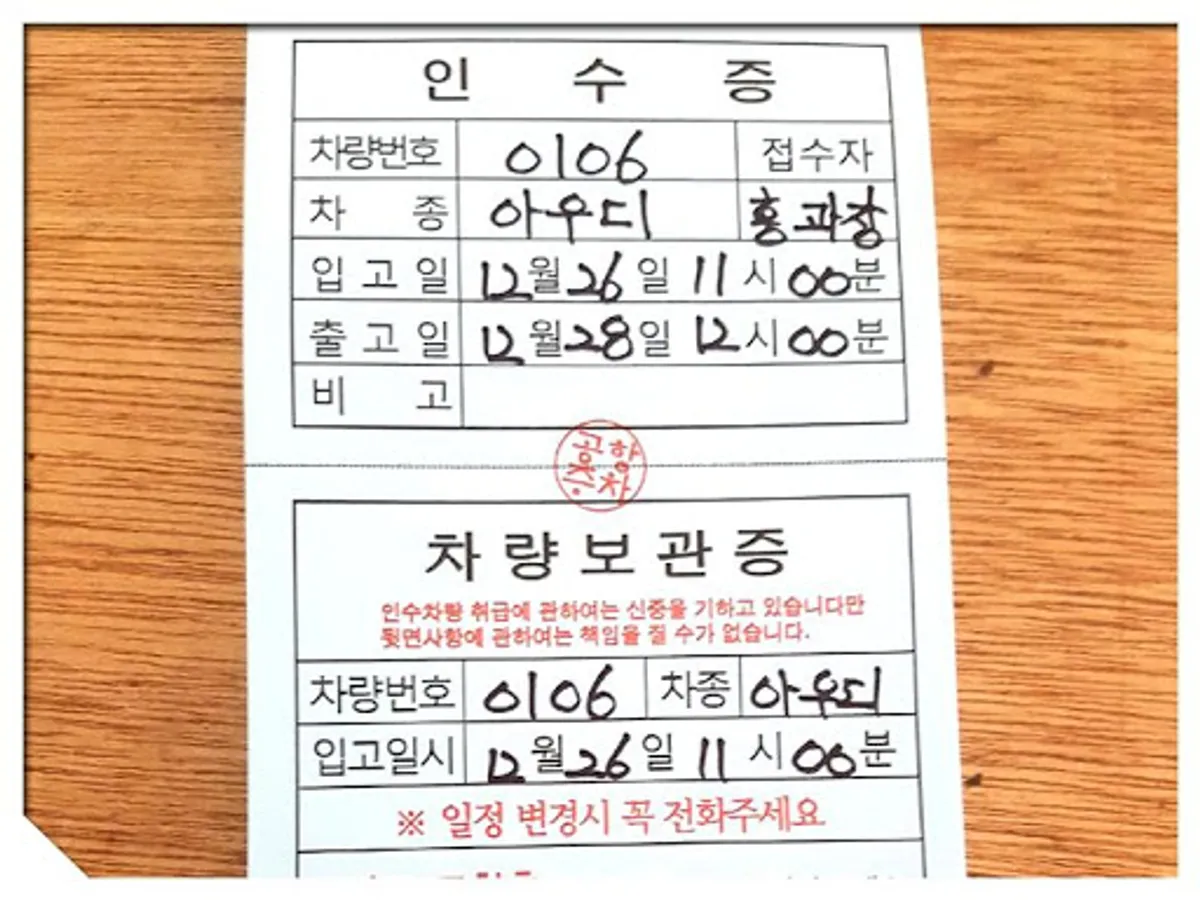 인 수 증
차량번호 0106 접수자
차 종 아우디 홍과장
입고일 12월 26일 11시 00분
출고일 12월 28일 12시 00분
비 고
공항
주차
차량보관증
인수차량 취급에 관하여는 신중을 기하고 있습니다만
뒷면사항에 관하여는 책임을 질 수가 없습니다.
차량번호 0106 차종 아우디
입고일시 12월 26일 11시 00분
※ 일정 변경시 꼭 전화주세요